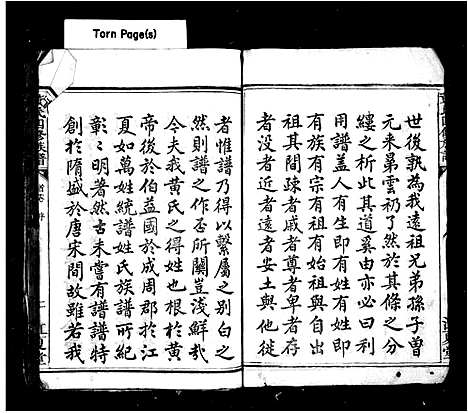 Torn Page(s)
世後孰為我遠祖兄弟孫子曽
元来㫒雲礽了然於其條之分
縷之析此其道奚由亦必曰利
用譜盖人有生即有姓有姓即
有族有宗有祖有始祖與自出
祖其間疎者戚者尊者卑者前
者没者近者遠者安土與他徙
者惟譜乃得以繫屬之别白之
然則譜之作否所關豈淺鮮㢤
今夫我黄氏之得姓也根於黄
帝後於伯益國於成周郡於江
夏如萬姓統譜姓氏族譜所紀
彰彰明著然古未嘗有譜譜特
創於隋盛於唐宋間故雖若我